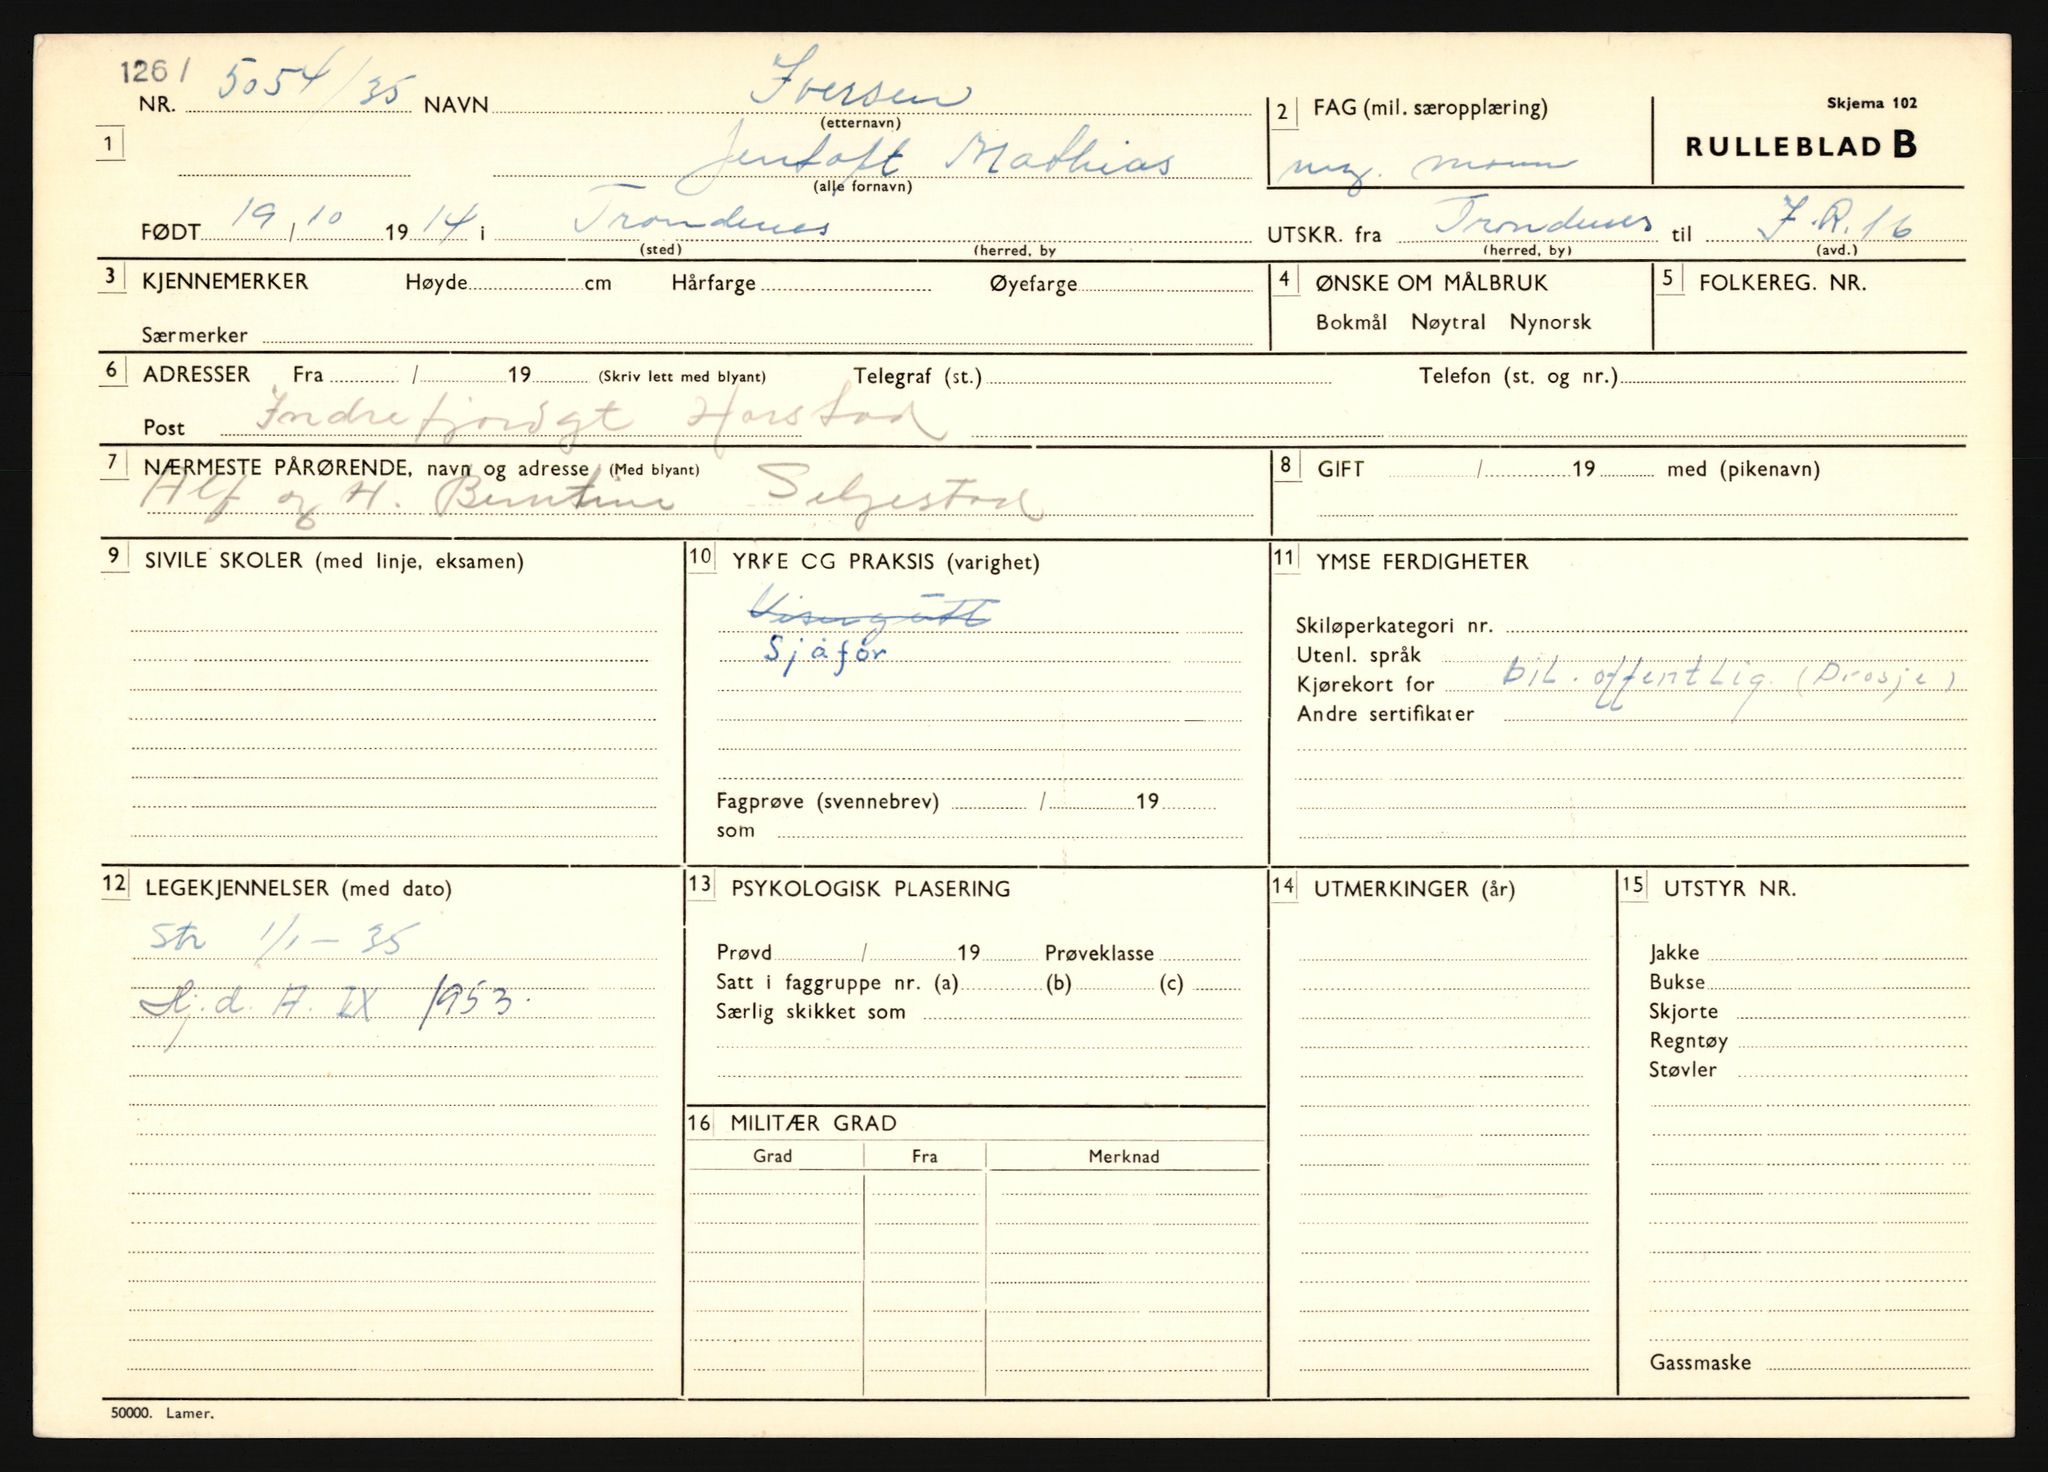 126 /
NR. 5054/35 NAVN Iversen
(etternavn)
1
Jentoft Mathias
(alle fornavn)
FØDT 19 / 10 1914 i Trondenes
(sted) (herred, by
2 FAG (mil. særopplæring)
mg. mann
Skjema 102
RULLEBLAD B
UTSKR. fra Trondenes til I.R. 16
(herred, by) (avd.)
3 KJENNEMERKER Høyde cm Hårfarge Øyefarge
Særmerker
4 ØNSKE OM MÅLBRUK
Bokmål Nøytral Nynorsk
5 FOLKEREG. NR.
6 ADRESSER Fra / 19 (Skriv lett med blyant) Telegraf (st.) Telefon (st. og nr.)
Post Indrefjordgt Harstad
7 NÆRMESTE PÅRØRENDE, navn og adresse (Med blyant)
Alf og H. Berntine Selgestad
8 GIFT / 19 med (pikenavn)
9 SIVILE SKOLER (med linje, eksamen)
10 YRKE CG PRAKSIS (varighet)
Visergutt
Sjåfør
Fagprøve (svennebrev) / 19
som
11 YMSE FERDIGHETER
Skiløperkategori nr.
Utenl. språk
Kjørekort for bil. offentlig. (Drosje)
Andre sertifikater
12 LEGEKJENNELSER (med dato)
Str 1/1 - 35
Hj. d. A. IX 1953.
13 PSYKOLOGISK PLASERING
Prøvd / 19 Prøveklasse
Satt i faggruppe nr. (a) (b) (c)
Særlig skikket som
14 UTMERKINGER (år)
15 UTSTYR NR.
Jakke
Bukse
Skjorte
Regntøy
Støvler
Gassmaske
16 MILITÆR GRAD
Grad Fra Merknad
50000. Lamer.